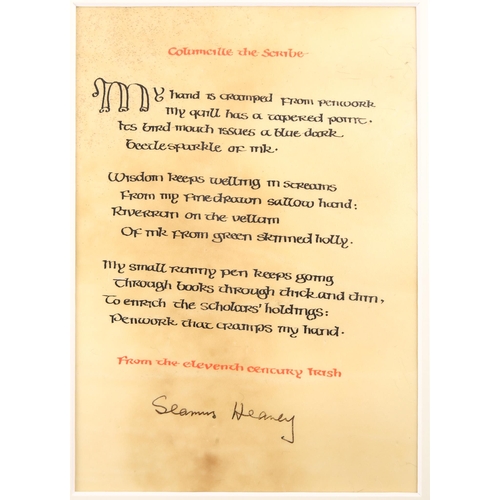 Columcille the Scribe
My hand is cramped from penwork
My quill has a tapered point.
Its bird mouth issues a blue dark
Beetlesparkle of ink.
Wisdom keeps welling in streams
From my finedrawn sallow hand:
Riverrun on the vellum
Of ink from green skinned holly.
My small runny pen keeps going
Through books through thick and thin,
To enrich the scholars' holdings:
Penwork that cramps my hand.
From the eleventh century Irish
Seamus Heaney